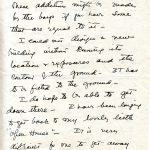 These additions might be made
by the boys if you have some
that are equal to it -
I could not design a new
building without knowing its
location & exposures and the
contour of the ground. It has
to be fitted to the ground -
I do hope to be able to get
down there - I have been longing
to get back to my lovely little
It is very
for one to get away